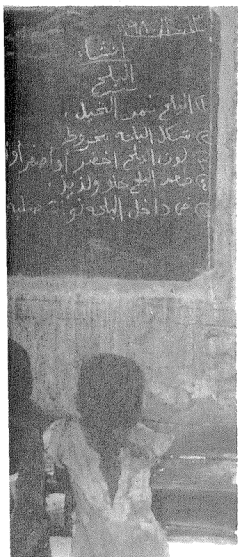 إنشاء
البلح
(١) البلح ثمر النخيل.
(٢) شكل البلحة مخروط
(٣) لون البلح أخضر أو أصفر أو
(٤) طعم البلح حلو ولذيذ.
(٥) في داخل البلحة نواة صلبة